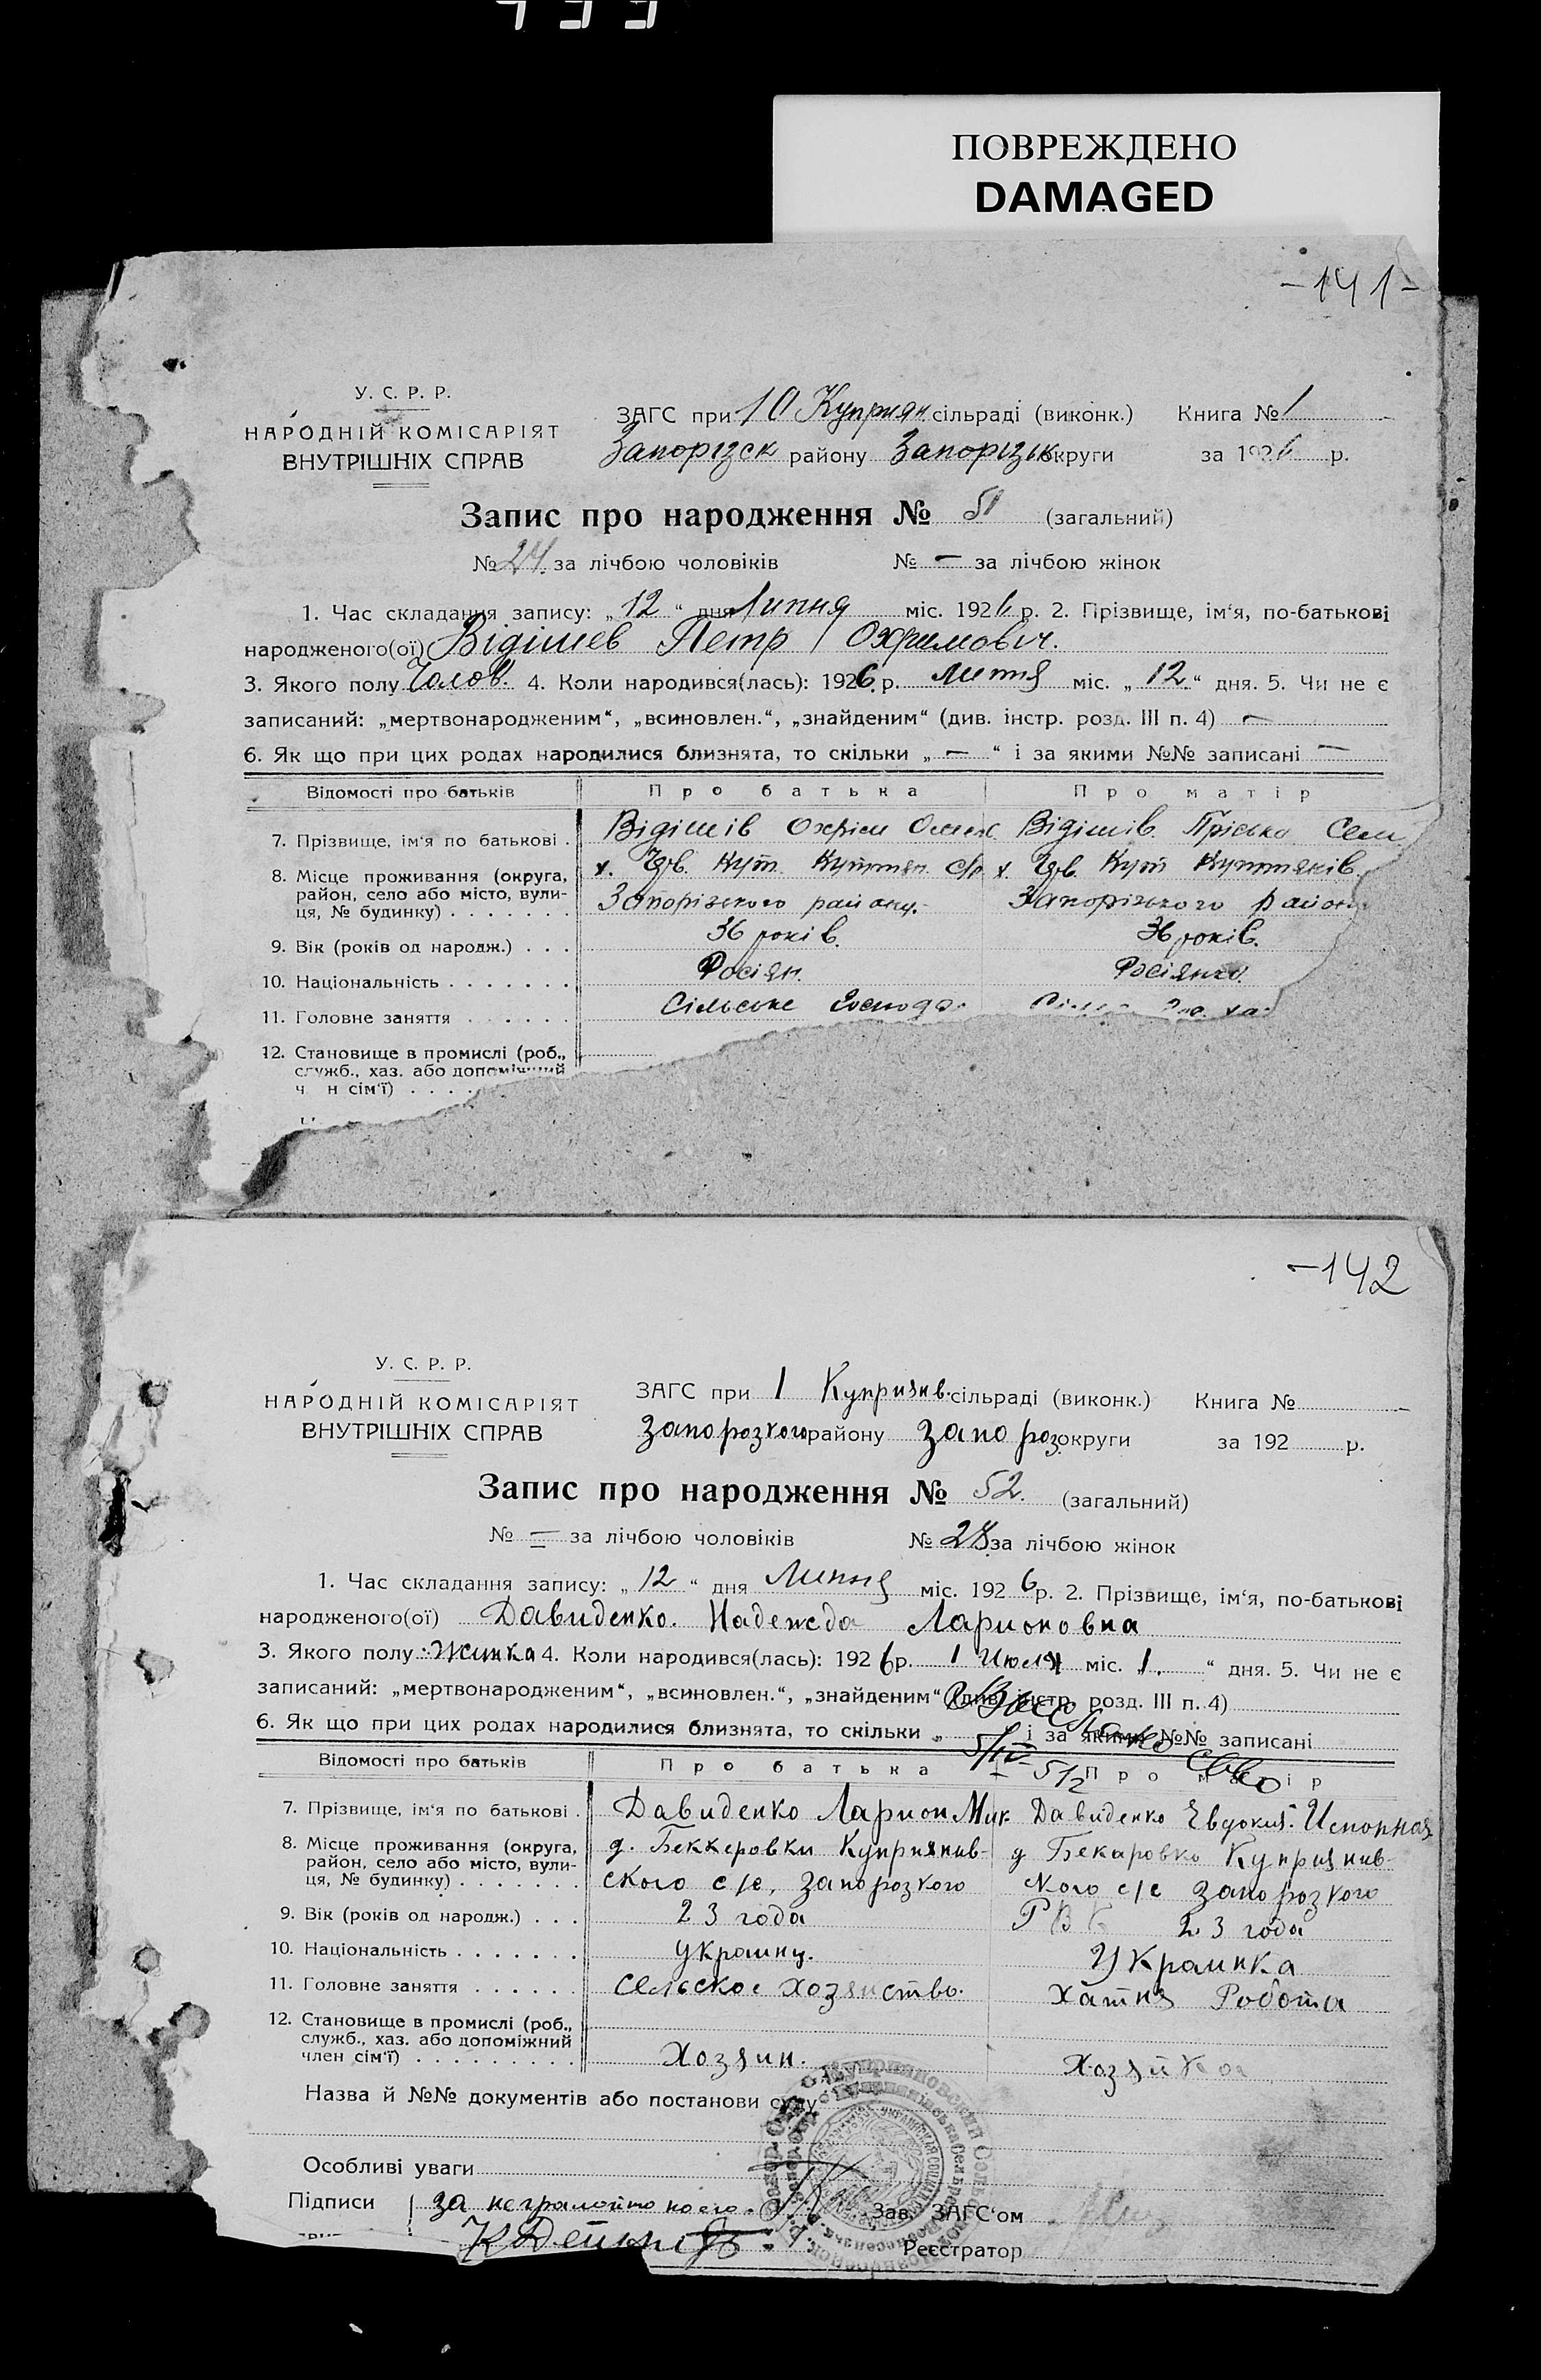 ПОВРЕЖДЕНО
DAMAGED
-141-
У. С. Р. Р.
НАРОДНІЙ КОМІСАРІЯТ
ВНУТРІШНІХ СПРАВ
ЗАГС при 1 Куприян сільраді (виконк.) Книга № 1
Запорізск району Запорізьк округи за 1926 р.
Запис про народження № 51 (загальний)
№ 24 за лічбою чоловіків № — за лічбою жінок
1. Час складання запису: „12“ дня Липня міс. 1926 р. 2. Прізвище, ім‘я, по-батькові
народженого(ої) Відішев Петр Охримович.
3. Якого полу Чолов. 4. Коли народився(лась): 1926 р. Липня міс. „12“ дня. 5. Чи не є
записаний: „мертвонародженим“, „всиновлен.“, „знайденим“ (див. інстр. розд. III п. 4) —
6. Як що при цих родах народилися близнята, то скільки „—“ і за якими №№ записані —
Відомості про батьків Про батька Про матір
7. Прізвище, ім‘я по батькові . Відішів Охрім Відішів. Пріська Сем
8. Місце проживання (округа, х. Кут х. Кут
район, село або місто, вули- Запорізького району. Запорізького район
ця, № будинку) . . . . . . .
9. Вік (років од народж.) . . . 36 років. 36 років.
10. Національність . . . . . . . Росіян. Росіянка.
11. Головне заняття . . . . . . Сільське Господа
12. Становище в промислі (роб.,
служб., хаз. або допоміжний
ч н сім‘ї) . . . .
-142
У. С. Р. Р.
НАРОДНІЙ КОМІСАРІЯТ
ВНУТРІШНІХ СПРАВ
ЗАГС при 1 Куприянив. сільраді (виконк.) Книга №
Запорозкого району Запороз округи за 192 р.
Запис про народження № 52. (загальний)
№ — за лічбою чоловіків № 28 за лічбою жінок
1. Час складання запису: „12“ дня Липня міс. 1926 р. 2. Прізвище, ім‘я, по-батькові
народженого(ої) Давиденко. Надежда Ларионовна
3. Якого полу Жинка 4. Коли народився(лась): 1926 р. 1 Июля міс. „1.“ дня. 5. Чи не є
записаний: „мертвонародженим“, „всиновлен.“, „знайденим“ (див. інстр. розд. III п. 4)
6. Як що при цих родах народилися близнята, то скільки „ і за якими №№ записані
5/IV 512
Відомості про батьків Про батька Про матір
7. Прізвище, ім‘я по батькові . Давиденко Ларион Мик Давиденко Евдокия
8. Місце проживання (округа, д. Беккеровки Куприянив- д Бекаровка Куприянив-
район, село або місто, вули- ского с/с, Запорозкого ского с/с Запорозкого
ця, № будинку) . . . . . . . РВК
9. Вік (років од народж.) . . . 23 года 23 года
10. Національність . . . . . . . Украинц. Украинка
11. Головне заняття . . . . . . Сельское хозяиство. Хатня Робота
12. Становище в промислі (роб.,
служб., хаз. або допоміжний
член сім‘ї) . . . . . . . . . Хозяин. Хозяйка
Назва й №№ документів або постанови суду
Особливі уваги
Підписи за неграмотного Зав. ЗАГС‘ом
Реєстратор